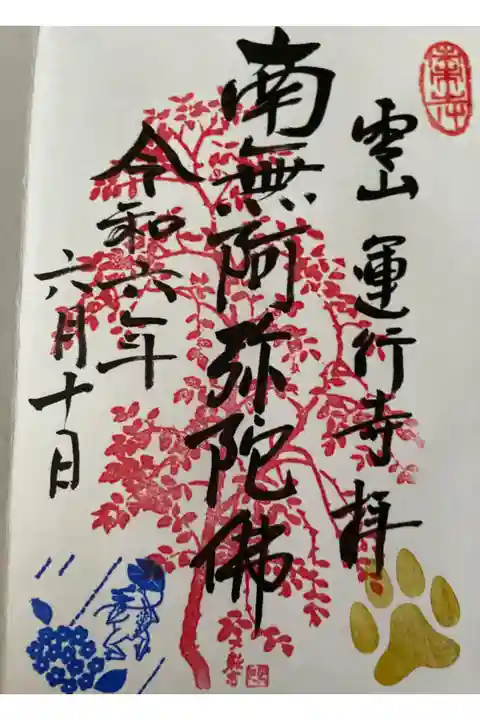 運行寺 拝
南無阿弥陀佛
令和六年
六月十日